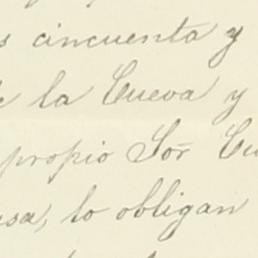 cincuenta y
la Cueva y
propio Sor̃
lo obligan